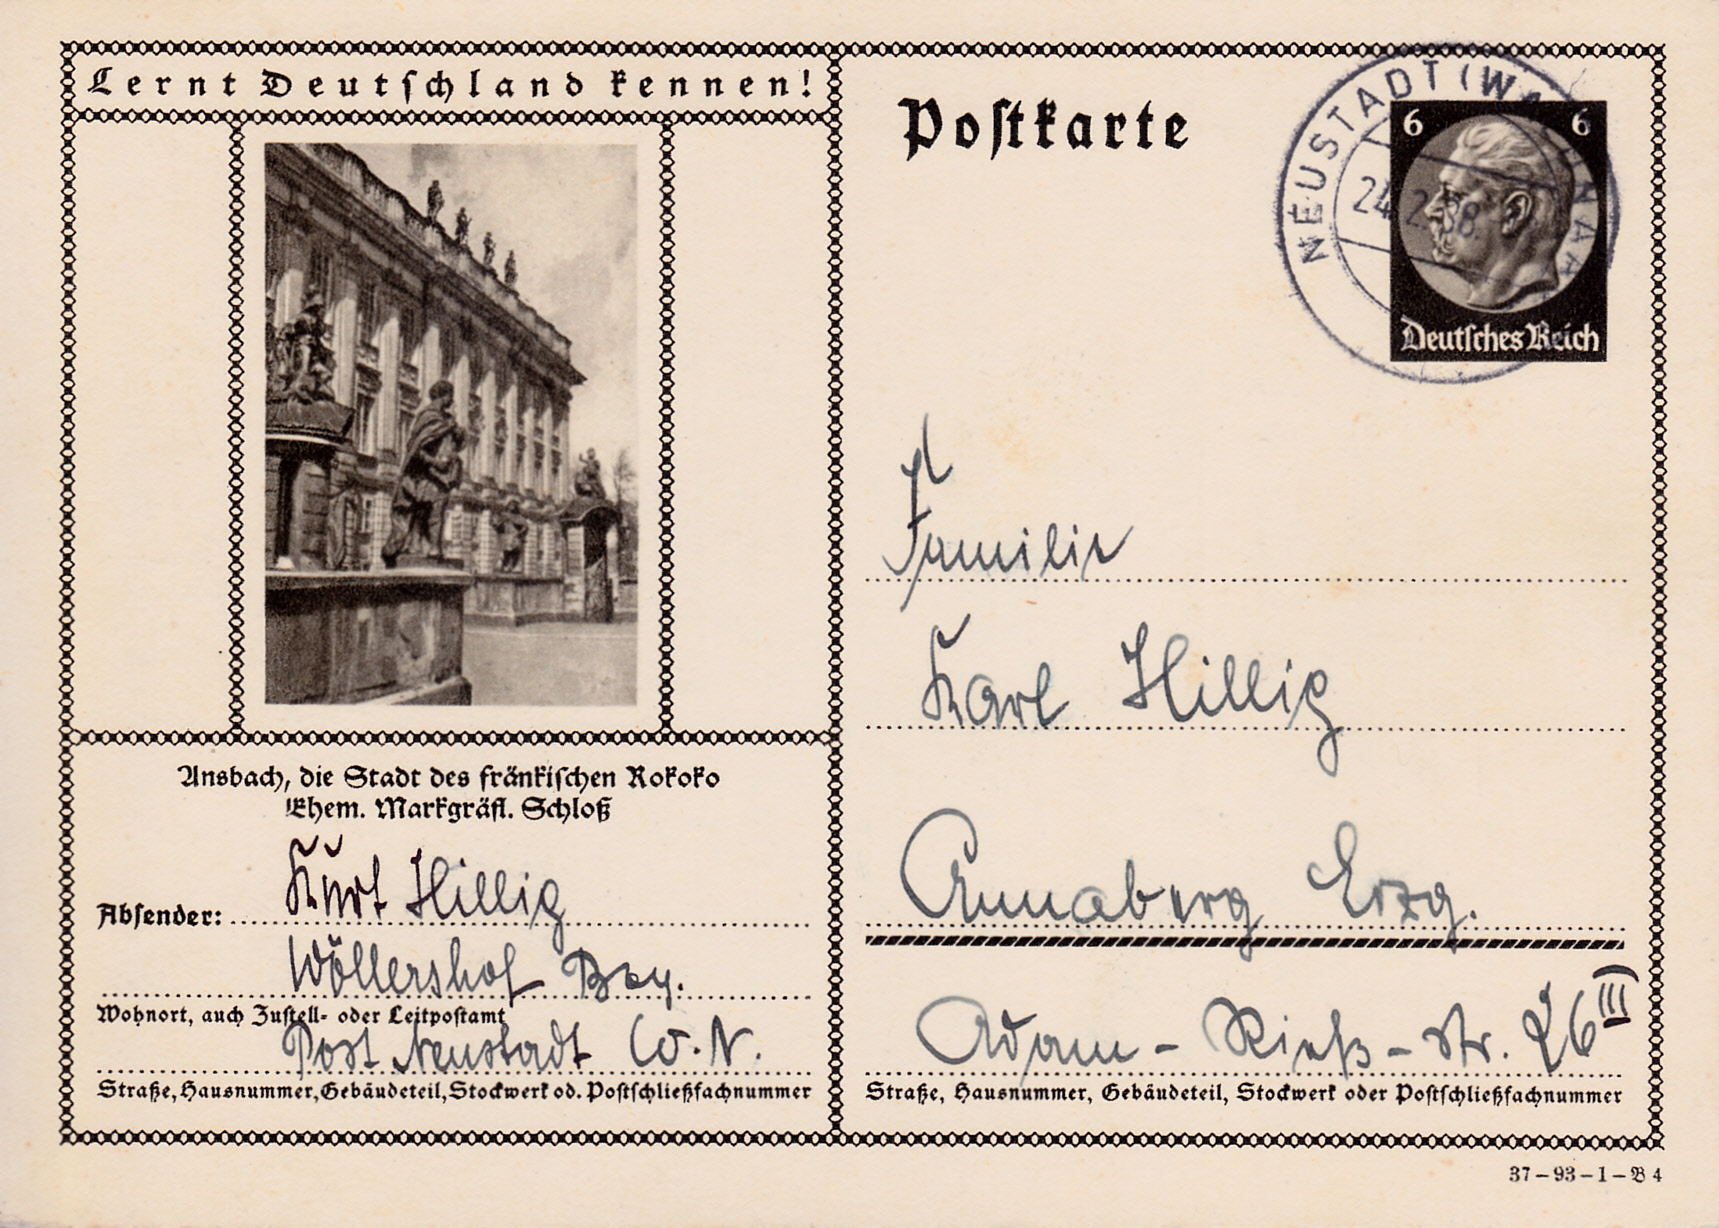 Lernt Deutschland kennen!
Postkarte
NEUSTADT (WALDNAAB
24.2.38.
6 6
Deutsches Reich
Ansbach, die Stadt des fränkischen Rokoko
Ehem. Markgräfl. Schloß
Absender: Kurt Hillig
Wöllershof Bay.
Wohnort, auch Zustell- oder Leitpostamt
Post Neustadt W. N.
Straße, Hausnummer, Gebäudeteil, Stockwerk od. Postschließfachnummer
Familie
Karl Hillig
Annaberg Erzg.
Adam-Rieß-Str. 26 III
Straße, Hausnummer, Gebäudeteil, Stockwerk oder Postschließfachnummer
37-93-1-B 4